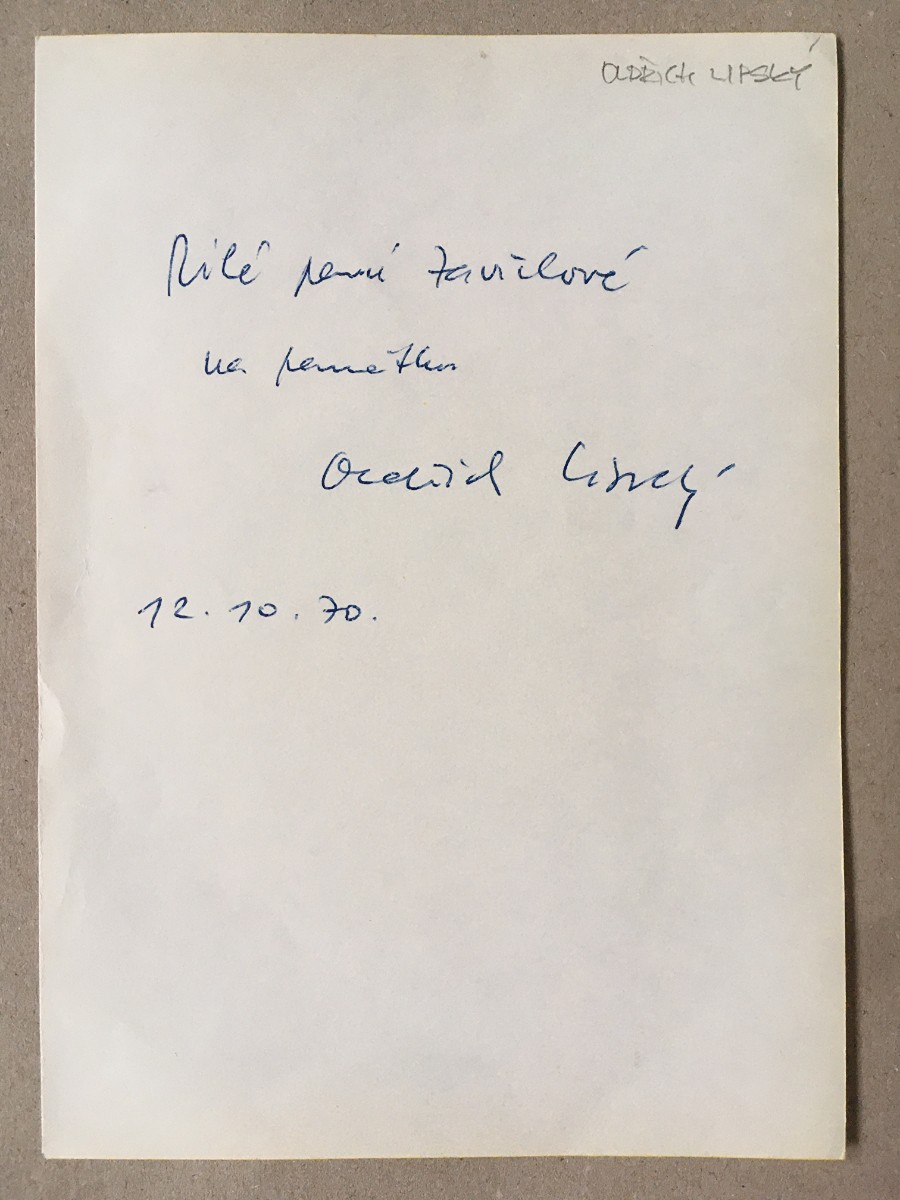 OLDŘICH LIPSKÝ
Milé paní Zavřelové
na památku
Oldřich Lipský
12. 10. 70.